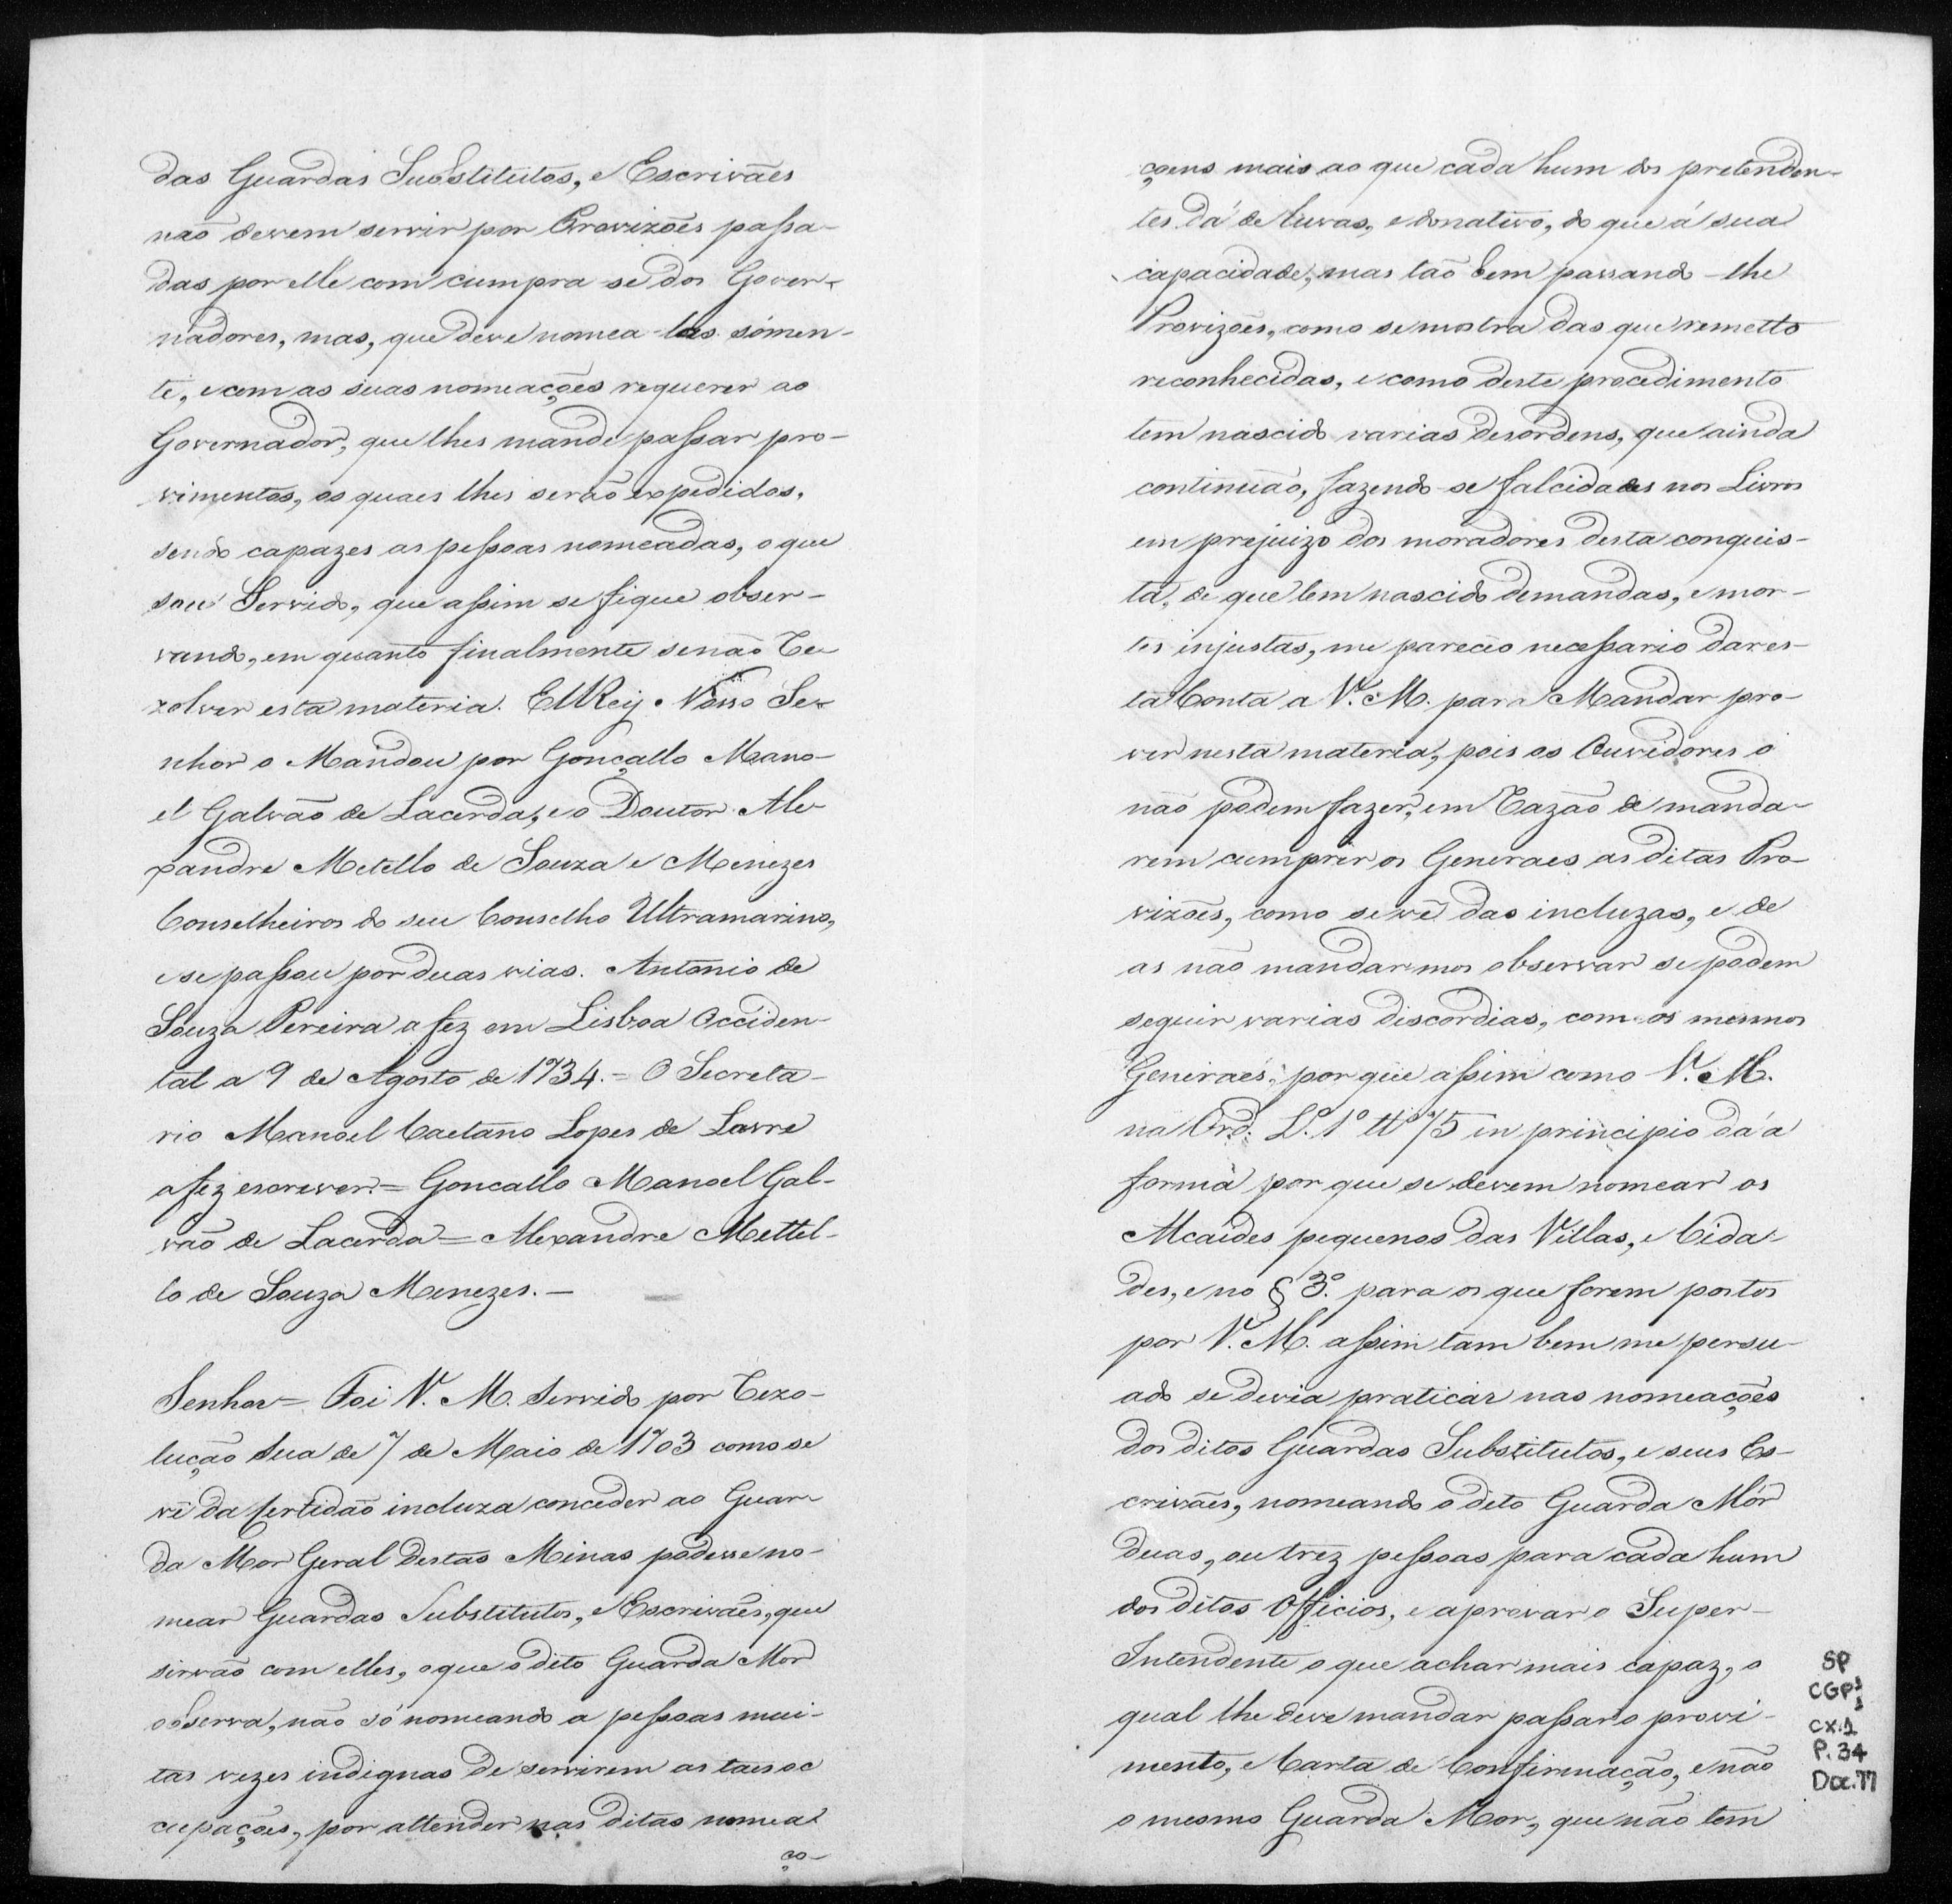 das Guardas Substitutos, e Escrivães
não devem servir por Provizões passa-
das por elle com cumpra-se dos Gover-
nadores, mas, que deve nomea-los sómen-
te, e com as suas nomeações requerer ao
Governador, que lhes mande passar pro-
vimentos, os quaes lhes serão expedidos,
sendo capazes as pessoas nomeadas, o que
sou Servido, que assim se fique obser-
vando, em quanto finalmente se não Re
zolver esta materia. ElRey Nosso Se-
nhor o Mandou por Gonçallo Mano-
el Galvão de Lacerda, e o Doutor Ale-
xandre Metello de Souza e Menezes
Conselheiros do seu Conselho Ultramarino,
e se passou por duas vias. Antonio de
Souza Pereira a fez em Lisboa Occiden-
tal a 9 de Agosto de 1734.= O Secreta-
rio Manoel Caetano Lopes de Lavre
a fez escrever.= Goncallo Manoel Gal-
vão de Lacerda = Alexandre Mettel-
lo de Souza Menezes.-
Senhor = Foi V. M. Servido por Rezo-
lução Sua de 7 de Maio de 1703 como se
vê da Certidão incluza conceder ao Guar-
da Mor Geral destas Minas podesse no-
mear Guardas Substitutos, e Escrivães, que
sirvão com elles, o que o dito Guarda Mor
observa, não só nomeando a pessoas mui-
tas vezes indignas de servirem as taes oc
cupações, por attender nas ditas nomea
ço-
çoens mais ao que cada hum dos pretenden-
tes dá de luvas, e donativo, do que á sua
capacidade, mas tão bem passando-lhe
Provizões, como se mostra das que remetto
reconhecidas, e como deste procedimento
tem nascido varias desordens, que ainda
continuão, fazendo-se falcidades nos Livros
em prejuizo dos moradores desta conquis-
ta, de que tem nascido demandas, e mor-
tes injustas, me pareceo necessario dar es-
ta Conta a V. M. para Mandar pro-
ver nesta materia, pois os Ouvidores o
não podem fazer, em Razão de manda-
rem cumprir os Generaes as ditas Pro-
vizões, como se vê das incluzas, e de
as não mandarmos observar se podem
seguir varias discordias, com os mesmos
Generaes, por que assim como V. M.
na Ord. L.º 1º ttº 75 in principio dá a
forma por que se devem nomear os
Alcaides pequenos das Villas, e Cida-
des, e no § 3º. para os que forem postos
por V. M. assim tam bem me persu-
ado se devia praticar nas nomeações
dos ditos Guardas Substitutos, e seus Es-
crivães, nomeando o dito Guarda Mór
duas, ou trez pessoas para cada hum
dos ditos Officios, e aprovar o Super-
Intendente o que achar mais capaz, o
qual lhe deve mandar passar o provi-
mento, e Carta de Confirmação, e não
o mesmo Guarda Mor, que não tem
SP
CGP
CX.1
P. 34
Doc. 77